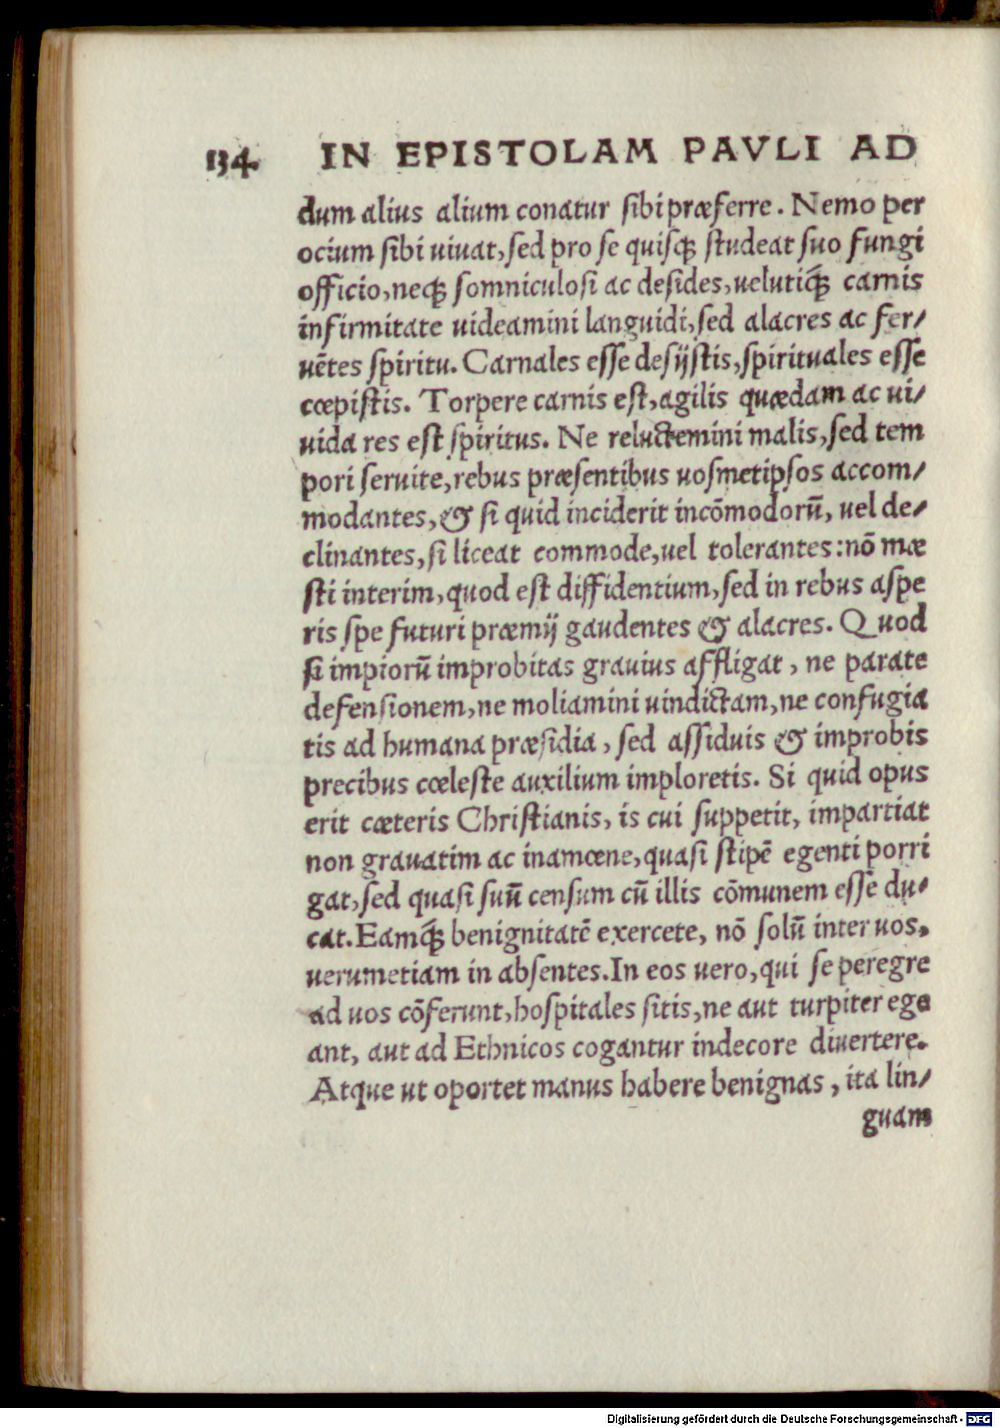 134. IN EPISTOLAM PAVLI AD
dum alius alium conatur sibi præferre. Nemo per
ocium sibi uiuat, sed pro se quisq; studeat suo fungi
officio, neq; somniculosi ac desides, uelutiq́; carnis
infirmitate uideamini languidi, sed alacres ac fer/
uẽtes spiritu. Carnales esse desijstis, spirituales esse
cœpistis. Torpere carnis est, agilis quædam ac ui/
uida res est spiritus. Ne reluctemini malis, sed tem
pori seruite, rebus præsentibus uosmetipsos accom/
modantes, & si quid inciderit incõmodorũ, uel de/
clinantes, si liceat commode, uel tolerantes: nõ mæ
sti interim, quod est diffidentium, sed in rebus aspe
ris spe futuri præmij gaudentes & alacres. Quod
si impiorũ improbitas grauius affligat, ne parate
defensionem, ne moliamini uindictam, ne confugia
tis ad humana præsidia, sed assiduis & improbis
precibus cœleste auxilium imploretis. Si quid opus
erit cæteris Christianis, is cui suppetit, impartiat
non grauatim ac inamœne, quasi stipẽ egenti porri
gat, sed quasi suũ censum cũ illis cõmunem esse du/
cat. Eamq́; benignitatẽ exercete, nõ solũ inter uos,
uerumetiam in absentes. In eos uero, qui se peregre
ad uos cõferunt, hospitales sitis, ne aut turpiter ege
ant, aut ad Ethnicos cogantur indecore diuertere.
Atque ut oportet manus habere benignas, ita lin/
guam
Digitalisierung gefördert durch die Deutsche Forschungsgemeinschaft - DFG